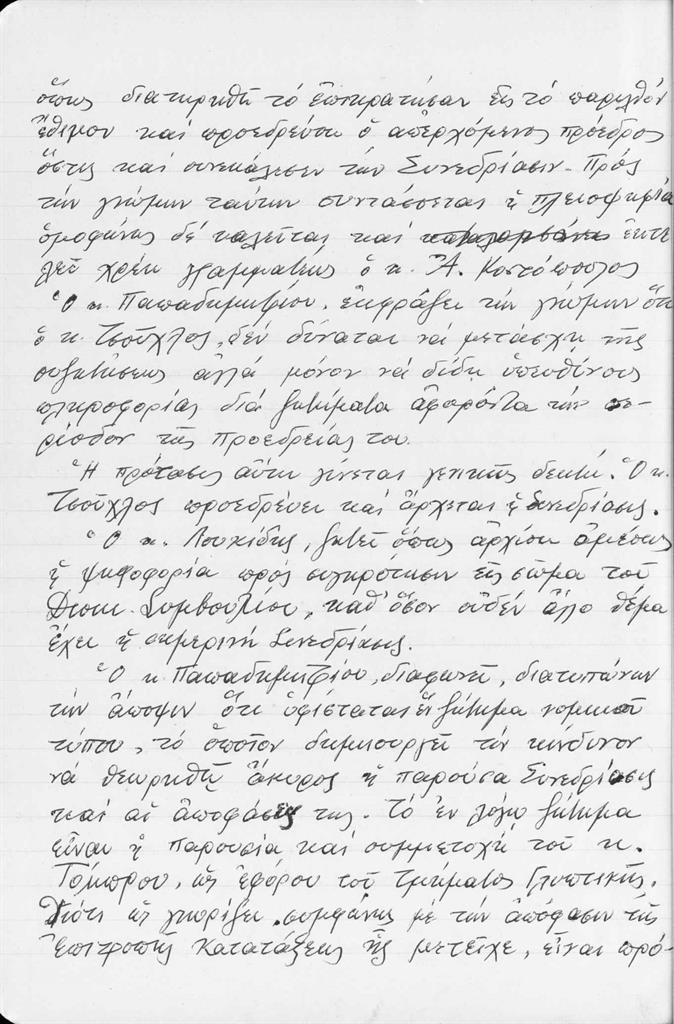 ὅπως διατηρηθῇ τό ἐπικρατῆσαν εἰς τό παρελθόν
ἔθιμον καί προεδρεύσῃ ὁ ἀπερχόμενος πρόεδρος
ὅστις καί συνεκάλεσεν τήν Συνεδρίασιν. Πρός
τήν γνώμην ταύτην συντάσσεται ἡ πλειοψηφία
ὁμοφώνως δέ καλεῖται καί ἐκτε
λεῖ χρέη γραμματέως ὁ κ. Ἀ. Κοτόπουλος
Ὁ κ. Παπαδημητρίου, ἐκφράζει τήν γνώμην ὅτι
ὁ κ. Τσοῦχλος, δέν δύναται νά μετάσχῃ τῆς
συζητήσεως ἀλλά μόνον νά δίδῃ ὑπευθύνους
πληροφορίας διά ζητήματα ἀφορῶντα τήν πε-
ρίοδον τῆς προεδρείας του.
Ἡ πρότασις αὕτη γίνεται γενικῶς δεκτή. Ὁ κ.
Τσοῦχλος προεδρεύει καί ἄρχεται ἡ Συνεδρίασις.
Ὁ κ. Λουκίδης, ζητεῖ ὅπως ἀρχίσῃ ἀμέσως
ἡ ψηφοφορία πρός συγκρότησιν εἰς σῶμα τοῦ
Διοικ. Συμβουλίου, καθ' ὅσον οὐδέν ἄλλο θέμα
ἔχει ἡ σημερινή Συνεδρίασις.
Ὁ κ Παπαδημητρίου, διαφωνεῖ, διατυπώνων
τήν ἄποψιν ὅτι ὑφίσταται ἕν ζήτημα νομικοῦ
τύπου, τό ὁποῖον δημιουργεῖ τόν κίνδυνον
νά θεωρηθῇ ἄκυρος ἡ παροῦσα Συνεδρίασις
καί αἱ ἀποφάσεις της. Τό ἐν λόγῳ ζήτημα
εἶναι ἡ παρουσία καί συμμετοχή τοῦ κ.
Τόμπρου, ὡς ἐφόρου τοῦ τμήματος Γλυπτικῆς.
Διότι ὡς γνωρίζει, συμφώνως μέ τήν ἀπόφασιν τῆς
Ἐπιτροπῆς Κατατάξεως ἧς μετεῖχε, εἶναι πρό-